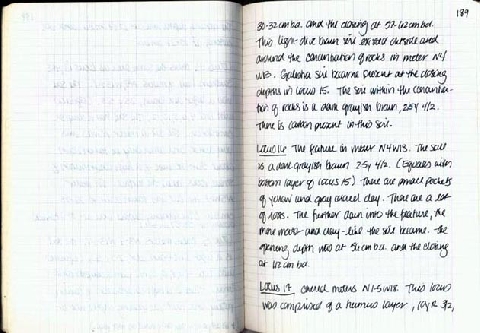 189
30-32 cm b.d. and the closing at 52-62 cm bd.
This light olive brown soil existed outside and
around the concentration of rocks in meter N41
W13. soil became present at the closing
depths in locus 15. The soil within the concentra-
tion of rocks is a dark grayish brown, 2.5Y 4/2.
There is carbon present in this soil.
Locus 16: The feature in meter N4W13. The soil
is a dark grayish brown 2.5Y 4/2. (Equates with
bottom layer of locus 15) There are small pockets
of yellow and gray clay. There are a lot
of roots. The further down into the feature, the
more moist and clay-like the soil became. The
opening depth was at 52 cm b.d. and the closing
at 62 cm bd.
Locus 17: Overall meters N1-5W18. This locus
was comprised of a humus layer, 10YR 3/2,